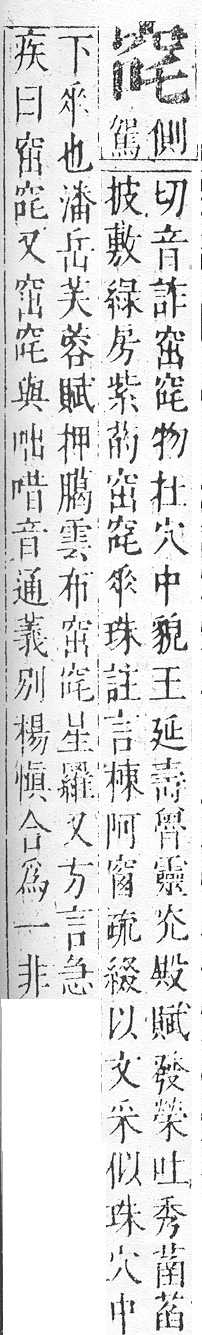 䆛
側駕
切音詐窋䆛物在穴中貌王延壽魯靈光殿賦發榮吐秀菡萏
披敷綠房紫菂窋䆛𠂹珠註言棟阿窗疏綴以文采似珠穴中
下𠂹也潘岳芙蓉賦押臈雲布窋䆛星羅又方言急
疾曰窋䆛又窋䆛與咄唶音通義別楊慎合爲一非